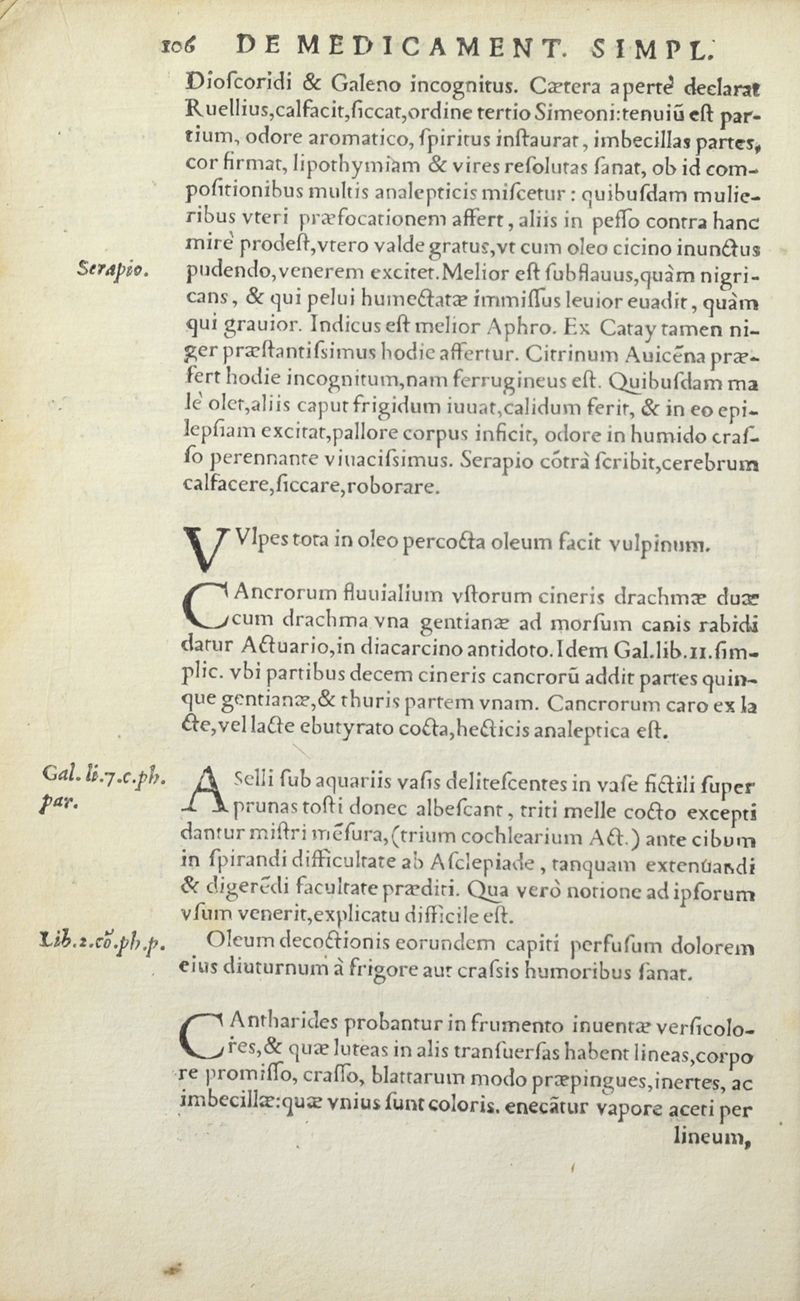 106 DE MEDICAMENT. SIMPL.
Dioſcoridi & Galeno incognitus. Cætera apertè declarat
Ruellius,calfacit,ſiccat,ordine tertio Simeoni:tenuiũ eſt par-
tium, odore aromatico, ſpiritus inſtaurat, imbecillas partes,
cor firmat, lipothymiam & vires reſolutas ſanat, ob id com-
poſitionibus multis analepticis miſcetur : quibuſdam mulie-
ribus vteri præfocationem affert, aliis in peſſo contra hanc
mirè prodeſt,vtero valde gratus,vt cum oleo cicino inunctus
Serapio.
pudendo,venerem excitet.Melior eſt ſubflauus,quàm nigri-
cans, & qui pelui humectatæ immiſſus leuior euadit, quàm
qui grauior. Indicus eſt melior Aphro. Ex Catay tamen ni-
ger præſtantiſsimus hodie affertur. Citrinum Auicẽna præ-
fert hodie incognitum,nam ferrugineus eſt. Quibuſdam ma
lè olet,aliis caput frigidum iuuat,calidum ferit, & in eo epi-
lepſiam excitat,pallore corpus inficit, odore in humido craſ-
ſo perennante viuaciſsimus. Serapio cõtrà ſcribit,cerebrum
calfacere,ſiccare,roborare.
VVlpes tota in oleo percocta oleum facit vulpinum.
CAncrorum fluuialium vſtorum cineris drachmæ duæ
cum drachma vna gentianæ ad morſum canis rabidi
datur Actuario,in diacarcino antidoto.Idem Gal.lib.11.ſim-
plic. vbi partibus decem cineris cancrorũ addit partes quin-
que gentianæ,& thuris partem vnam. Cancrorum caro ex la
cte,vel lacte ebutyrato cocta,hecticis analeptica eſt.
Gal. li.7.c.ph.
par.
ASelli ſub aquariis vaſis deliteſcentes in vaſe fictili ſuper
prunas toſti donec albeſcant, triti melle cocto excepti
dantur miſtri mẽſura,(trium cochlearium Act.) ante cibum
in ſpirandi difficultate ab Aſclepiade , tanquam extenuandi
& digerẽdi facultate præditi. Qua verò notione ad ipſorum
vſum venerit,explicatu difficile eſt.
Lib.2.cõ.ph.p.
Oleum decoctionis eorundem capiti perfuſum dolorem
eius diuturnum à frigore aut craſsis humoribus ſanat.
CAntharides probantur in frumento inuentæ verſicolo-
res,& quæ luteas in alis tranſuerſas habent lineas,corpo
re promiſſo, craſſo, blattarum modo præpingues,inertes, ac
imbecillæ:quæ vnius ſunt coloris. enecãtur vapore aceti per
lineum,